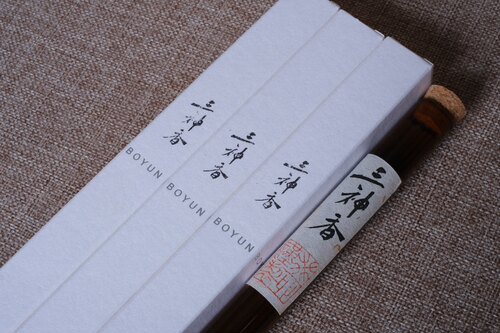 三神香
BOYUN
三神香
BOYUN
三神香
BOYUN
三神香